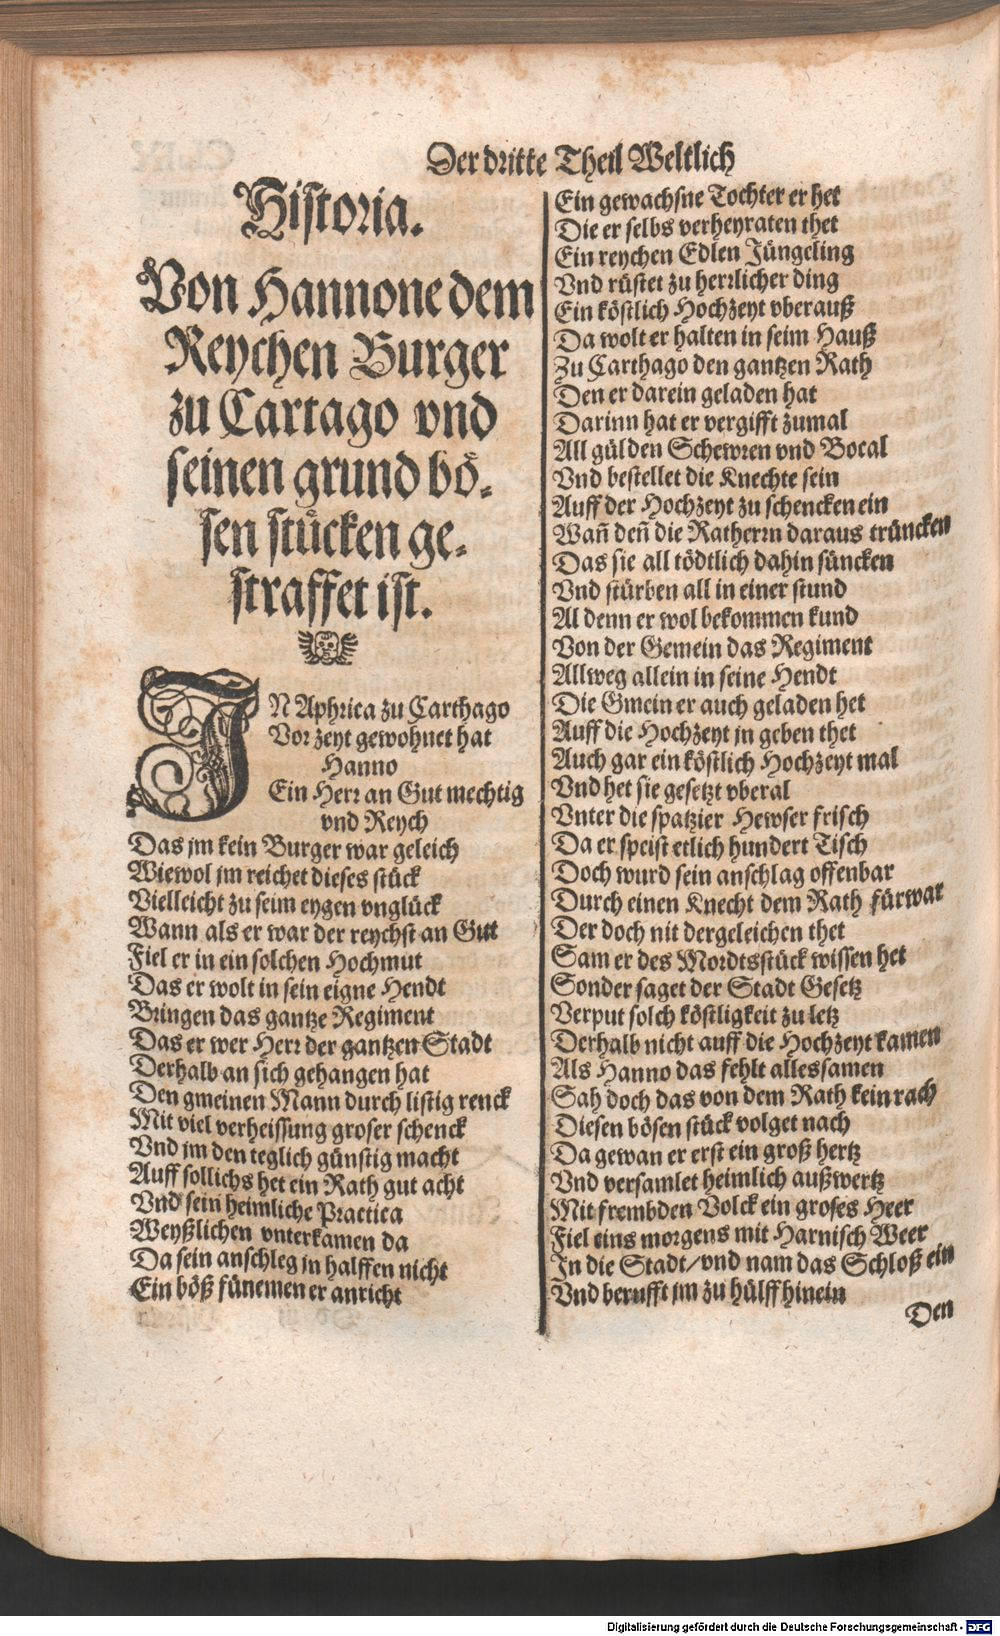 Der dritte Theil Weltlich
Historia.
Von Hannone dem
Reychen Burger
zu Cartago vnd
seinen grund bö-
sen stücken ge-
straffet ist.
IN Aphrica zu Carthago
Vor zeyt gewohnet hat
Hanno
Ein Herr an Gut mechtig
vnd Reych
Das jm kein Burger war geleich
Wiewol jm reichet dieses stück
Vielleicht zu seim eygen vnglück
Wann als er war der reychst an Gut
Fiel er in ein solchen Hochmut
Das er wolt in sein eigne Hendt
Bringen das gantze Regiment
Das er wer Herr der gantzen Stadt
Derhalb an sich gehangen hat
Den gmeinen Mann durch listig renck
Mit viel verheissung groser schenck
Vnd jm den teglich günstig macht
Auff sollichs het ein Rath gut acht
Vnd sein heimliche Practica
Weyßlichen vnterkamen da
Da sein anschleg jn halffen nicht
Ein böß fünemen er anricht
Ein gewachsne Tochter er het
Die er selbs verheyraten thet
Ein reychen Edlen Jüngeling
Vnd rüstet zu herrlicher ding
Ein köstlich Hochzeyt vberauß
Da wolt er halten in seim Hauß
Zu Carthago den gantzen Rath
Den er darein geladen hat
Darinn hat er vergifft zumal
All gülden Schewren vnd Bocal
Vnd bestellet die Knechte sein
Auff der Hochzeyt zu schencken ein
Wañ deñ die Ratherrn daraus trüncken
Das sie all tödtlich dahin süncken
Vnd stürben all in einer stund
Al denn er wol bekommen kund
Von der Gemein das Regiment
Allweg allein in seine Hendt
Die Gmein er auch geladen het
Auff die Hochzeyt jn geben thet
Auch gar ein köstlich Hochzeyt mal
Vnd het sie gesetzt vberal
Vnter die spatzier Hewser frisch
Da er speist etlich hundert Tisch
Doch wurd sein anschlag offenbar
Durch einen Knecht dem Rath fürwar
Der doch nit dergeleichen thet
Sam er des Mordtsstück wissen het
Sonder saget der Stadt Gesetz
Verput solch köstligkeit zu letz
Derhalb nicht auff die Hochzeyt kamen
Als Hanno das fehlt allessamen
Sah doch das von dem Rath kein rach
Diesen bösen stück volget nach
Da gewan er erst ein groß hertz
Vnd versamlet heimlich außwertz
Mit frembden Volck ein groses Heer
Fiel eins morgens mit Harnisch Weer
In die Stadt/vnd nam das Schloß ein
Vnd berufft jm zu hülff hinein
Den
Digitalisierung gefördert durch die Deutsche Forschungsgemeinschaft - DFG